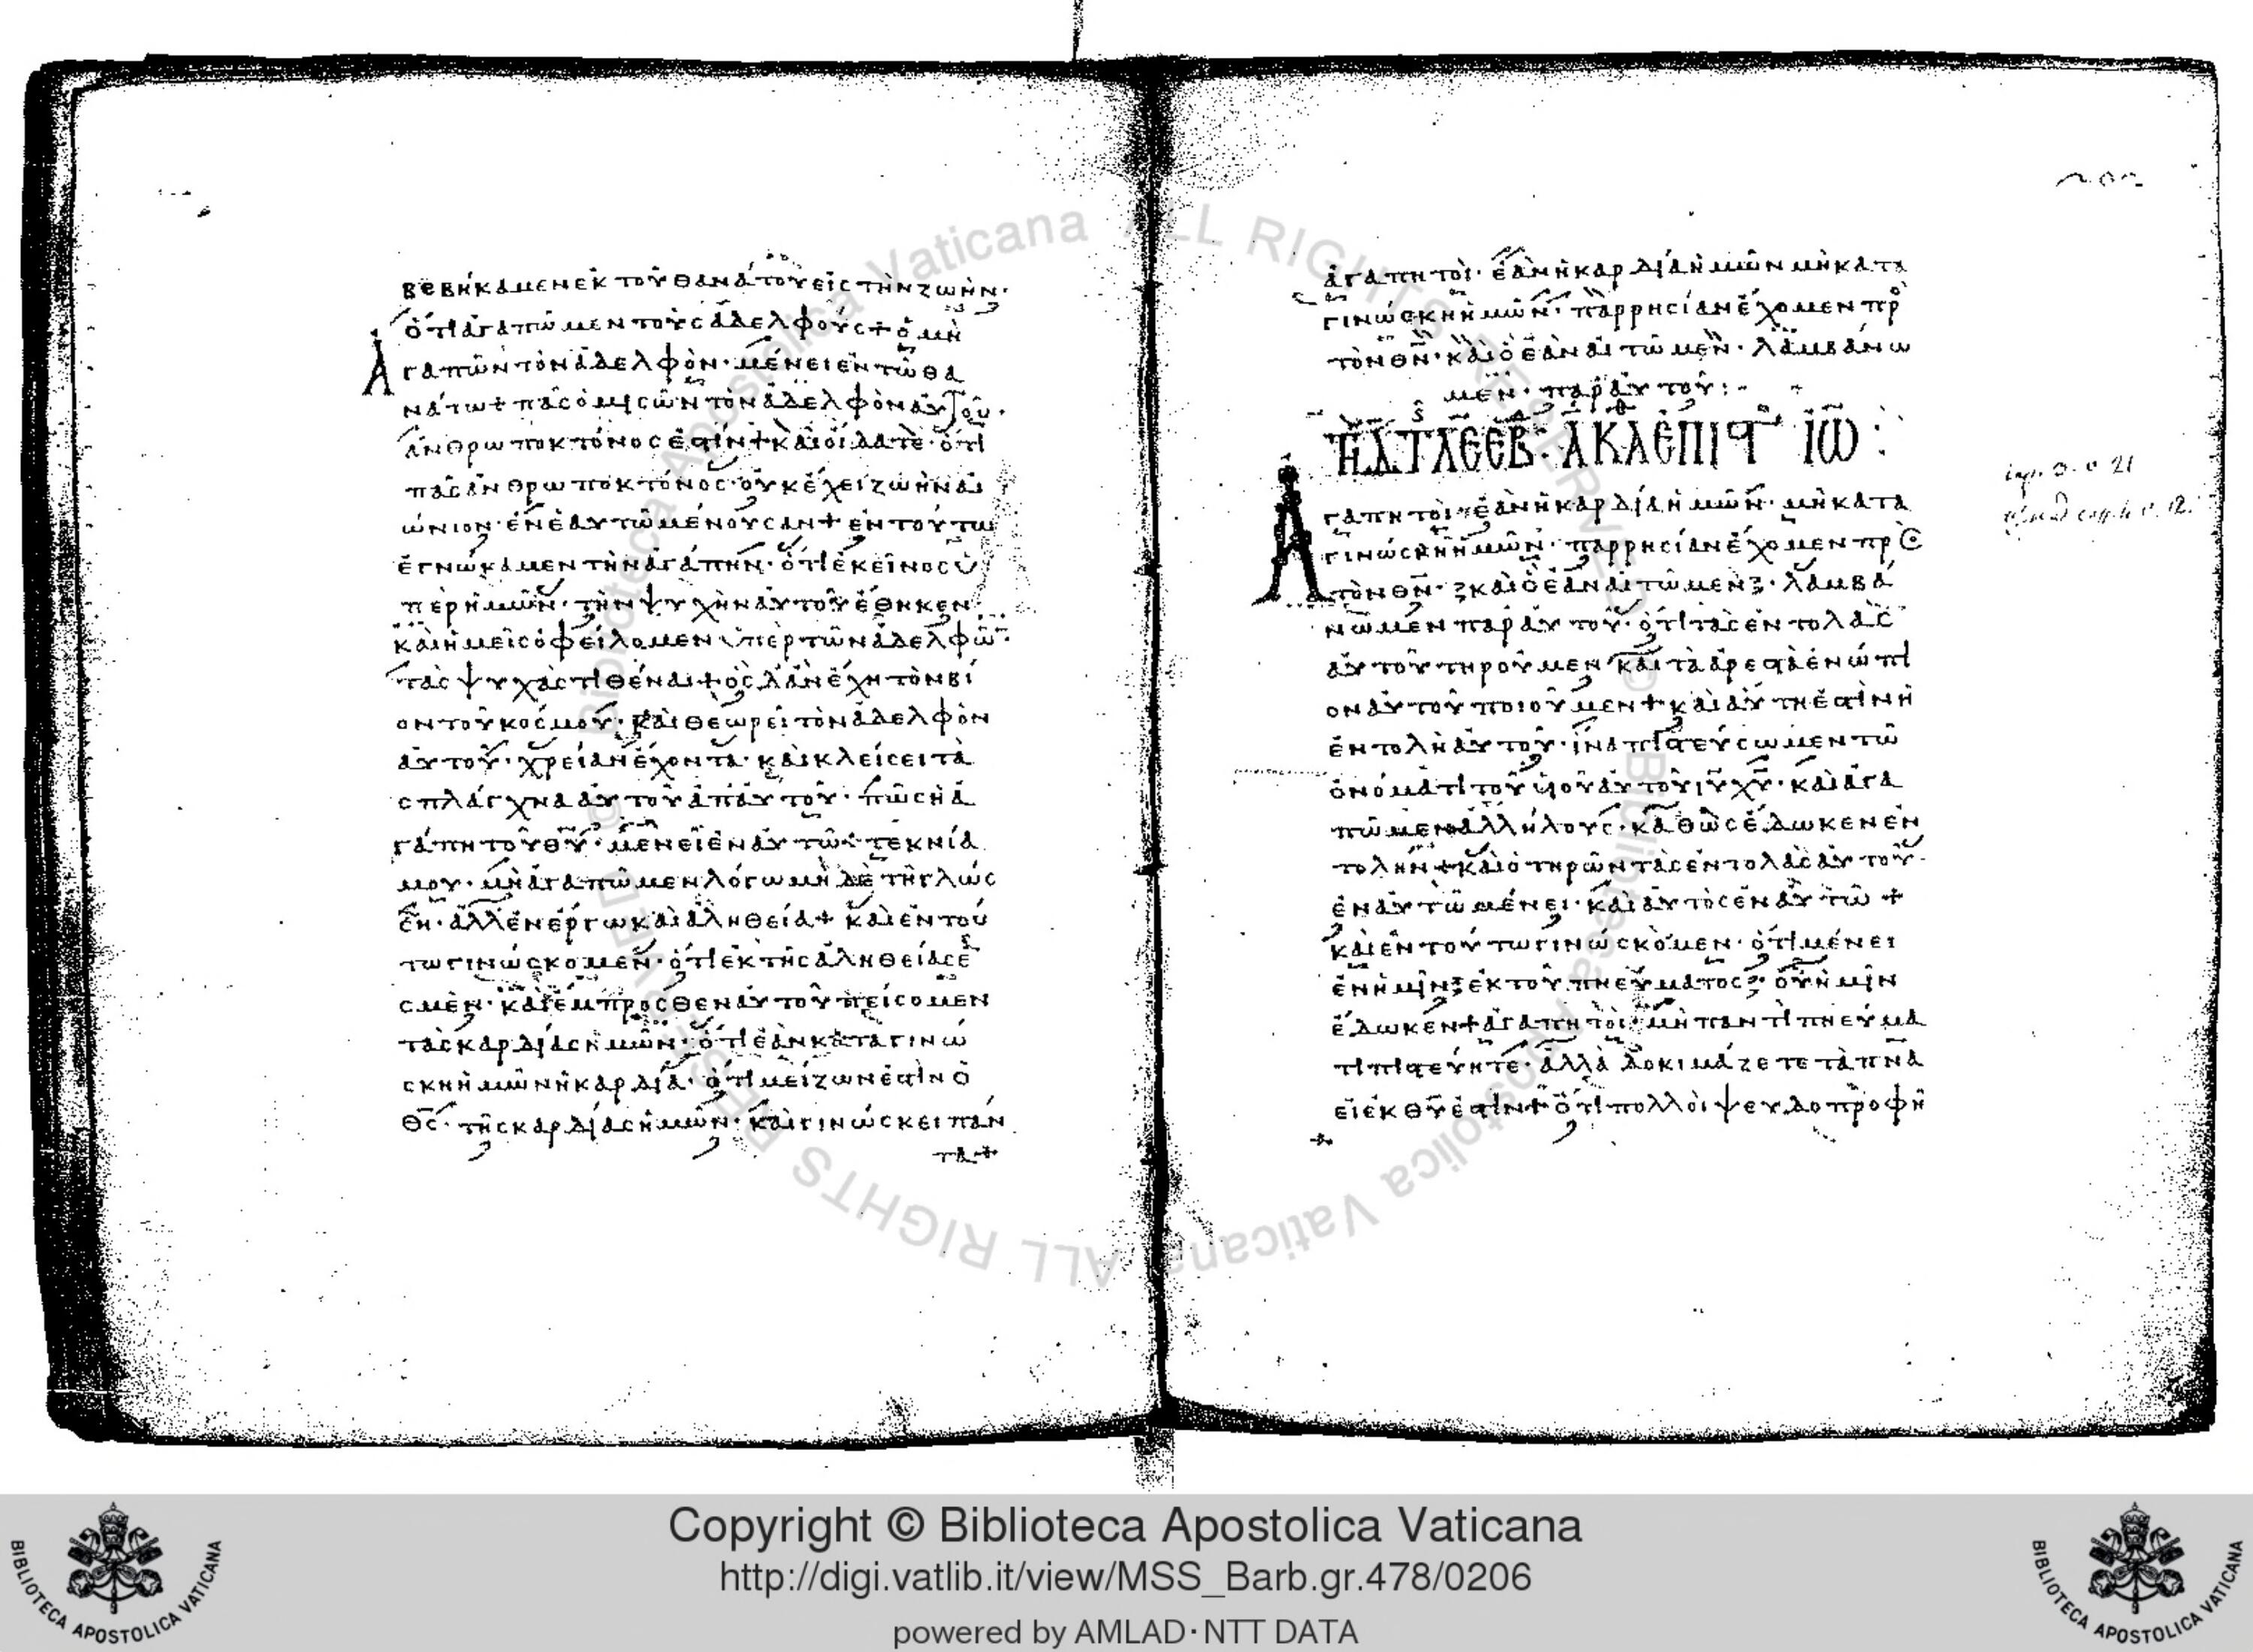 βεβήκαμεν ἐκ τοῦ θανάτου εἰς τὴν ζωὴν·
ὅτι ἀγαπῶμεν τοὺς ἀδελφούς + ὁ μὴ
ἀγαπῶν τὸν ἀδελφὸν· μένει ἐν τῶ θα
νάτω + πᾶς ὁ μισῶν τὸν ἀδελφὸν αὐτοῦ·
ἀνθρωποκτόνος ἐστὶν + καὶ οἴδατε· ὅτι
πᾶς ἀνθρωποκτόνος· οὐκ ἔχει ζωὴν αἰ
ώνιον· ἐν ἑαυτῶ μένουσαν + ἐν τούτω
ἐγνώκαμεν τὴν ἀγάπην· ὅτι ἐκεῖνος ὑ
πὲρ ἡμῶν· τὴν ψυχὴν αὐτοῦ ἔθηκεν·
καὶ ἡμεῖς ὀφείλομεν ὑπὲρ τῶν ἀδελφῶ·
τὰς ψυχὰς τιθέναι + ὃς δ' ἂν ἔχη τὸν βί
ον τοῦ κόσμου· καὶ θεωρεῖ τὸν ἀδελφὸν
αὐτοῦ· χρείαν ἔχοντα· καὶ κλείσει τὰ
σπλάγχνα αὐτοῦ ἀπ' αὐτοῦ· πῶς ἡ ἀ
γάπη τοῦ θυ· μένει ἐν αὐτῶ + τεκνία
μου· μὴ ἀγαπῶμεν λόγω μὴ δὲ τῆ γλώσ
ση· ἀλλ' ἐν ἔργω καὶ ἀληθεία + καὶ ἐν τού
τω γινώσκομεν· ὅτι ἐκ τῆς ἀληθείας ἐ
σμὲν· καὶ ἔμπροσθεν αὐτοῦ πείσομεν
τὰς καρδίας ἡμῶν· ὅτι ἐὰν καταγινώ
σκη ἡμῶν ἡ καρδία· ὅτι μείζων ἐστὶν ὁ
θς· τῆς καρδίας ἡμῶν· καὶ γινώσκει πάν
τα +
ἀγαπητοὶ· ἐὰν ἡ καρδία ἡμῶν μὴ κατα
γινώσκη ἡμῶν· παρρησίαν ἔχομεν πρ
τὸν θν· καὶ ὃ ἐὰν αἰτῶμεν· λαμβάνω
μεν· παρ' αὐτοῦ:-
ἀγαπητοὶ· ἐὰν ἡ καρδία ἡμῶν· μὴ κατα
γινώσκη ἡμῶν· παρρησίαν ἔχομεν πρὸς
τὸν θν· καὶ ὃ ἐὰν αἰτῶμεν· λαμβά
νωμεν παρ' αὐτοῦ· ὅτι τὰς ἐντολὰς
αὐτοῦ τηροῦμεν καὶ τὰ ἀρεστὰ ἐνώπι
ον αὐτοῦ ποιοῦμεν + καὶ αὕτη ἐστὶν ἡ
ἐντολὴ αὐτοῦ· ἵνα πιστεύσωμεν τῶ
ὀνόματι τοῦ υἱοῦ αὐτοῦ ιυ χυ· καὶ ἀγα
πῶμεν ἀλλήλους· καθὼς ἔδωκεν ἐν
τολὴν + καὶ ὁ τηρῶν τὰς ἐντολὰς αὐτοῦ·
ἐν αὐτῶ μένει· καὶ αὐτὸς ἐν αὐτῶ +
καὶ ἐν τούτω γινώσκομεν· ὅτι μένει
ἐν ἡμῖν ἐκ τοῦ πνεύματος· οὗ ἡμῖν
ἔδωκεν + ἀγαπητοὶ· μὴ παντὶ πνεύμα
τι πιστεύητε· ἀλλὰ δοκιμάζετε τὰ πνα
εἰ ἐκ θυ ἐστὶν + ὅτι πολλοὶ ψευδοπροφῆ
Copyright © Biblioteca Apostolica Vaticana
http://digi.vatlib.it/view/MSS_Barb.gr.478/0206
powered by AMLAD·NTT DATA
BIBLIOTECA APOSTOLICA VATICANA
BIBLIOTECA APOSTOLICA VATICANA